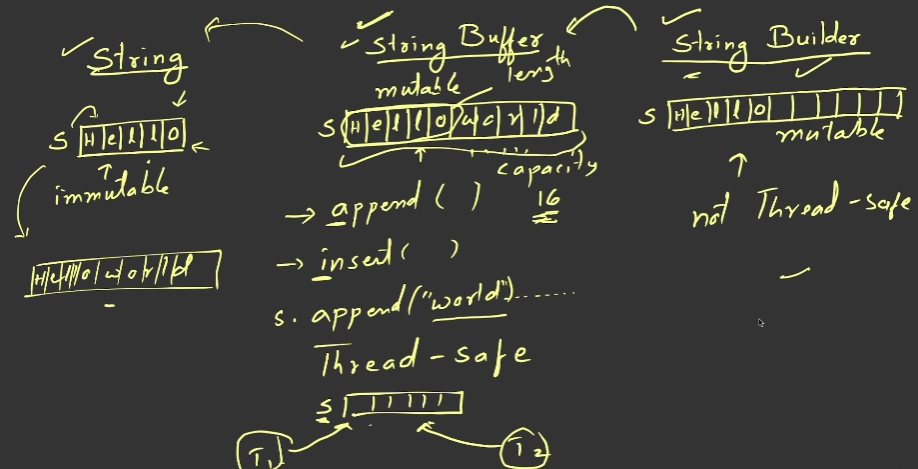 String
S H e l l o
immutable
H e l l o w o r l d
String Buffer
mutable
length
S H e l l o w o r l d
capacity
16
→ append ( )
→ insert ( )
s. append ("world")......
Thread-safe
S
T1
T2
String Builder
S H e l l o
mutable
not Thread-safe